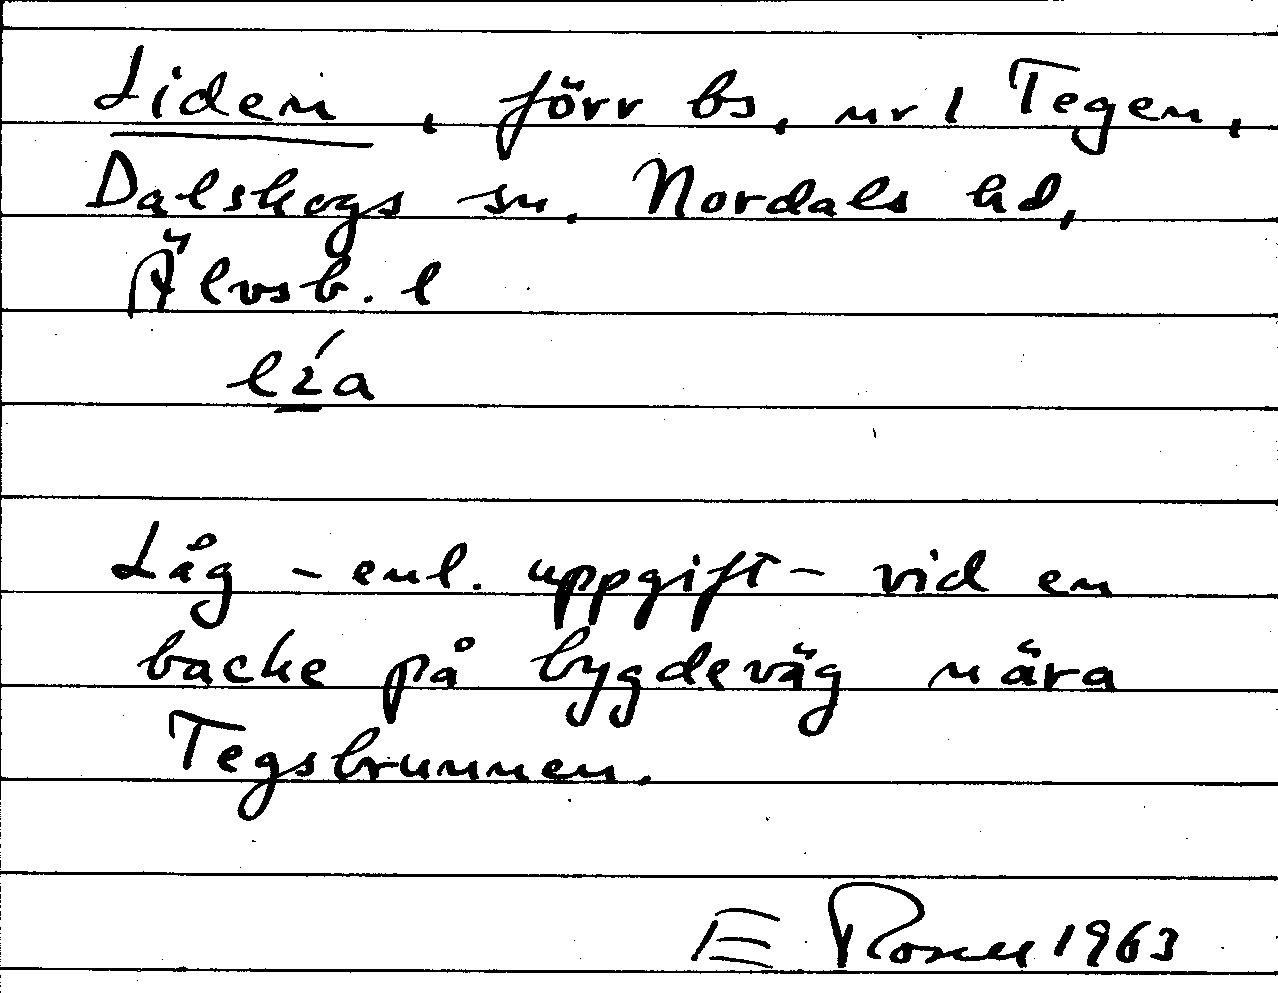 Liden, förr bs, nr 1 Tegen,
Dalskogs sn. Nordals hd,
Älvsb. l
Låg - enl. uppgift - vid en
backe på bygdeväg nära
Tegsbrunnen.
E Rosen 1963